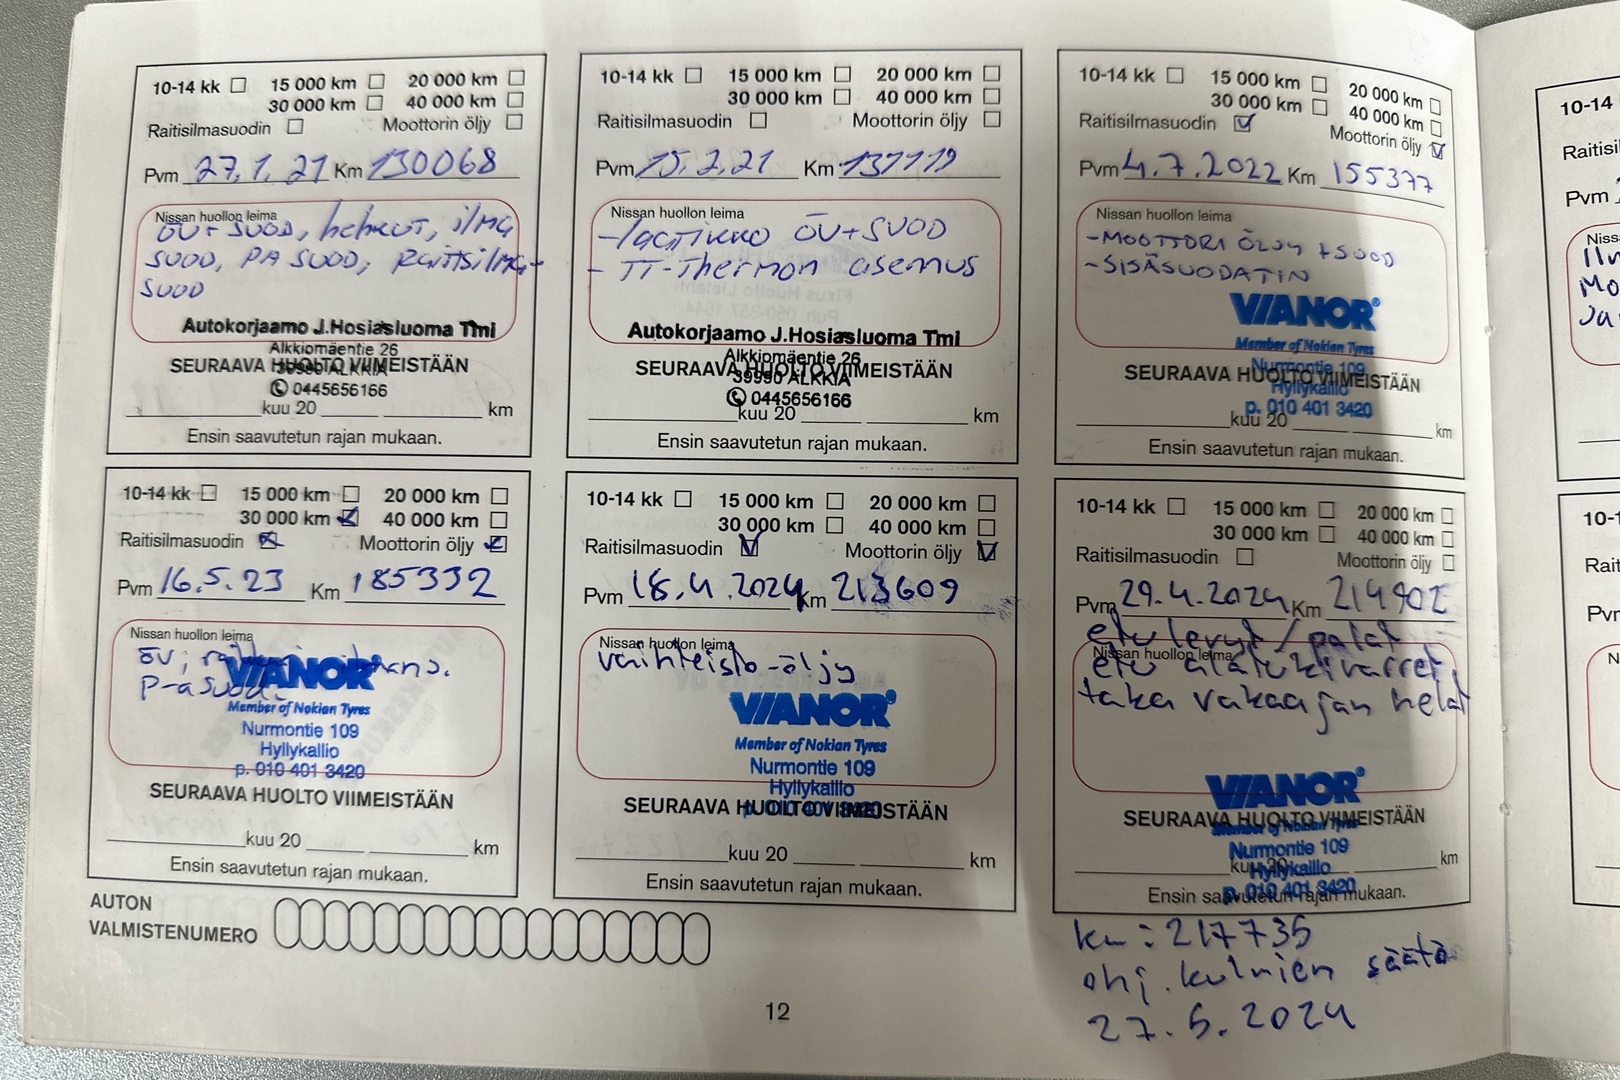 10-14 kk 15 000 km 20 000 km
30 000 km 40 000 km
Raitisilmasuodin Moottorin öljy
Pvm 27.1.21 Km 130068
Nissan huollon leima
ÖV+SUOD, hehkut, ilma
SUOD, PA SUOD, Raitisilma-
SUOD
Autokorjaamo J.Hosiasluoma Tmi
Alkkiomäentie 26
39990 ALKKIA
SEURAAVA HUOLTO VIIMEISTÄÄN
0445656166
kuu 20 km
Ensin saavutetun rajan mukaan.
10-14 kk 15 000 km 20 000 km
30 000 km 40 000 km
Raitisilmasuodin Moottorin öljy
Pvm 15.2.21 Km 131119
Nissan huollon leima
ÖV+SUOD
- TT-Thermon asennus
Autokorjaamo J.Hosiasluoma Tmi
Alkkiomäentie 26
SEURAAVA HUOLTO VIIMEISTÄÄN
39990 ALKKIA
0445656166
kuu 20 km
Ensin saavutetun rajan mukaan.
10-14 kk 15 000 km 20 000 km
30 000 km 40 000 km
Raitisilmasuodin Moottorin öljy
Pvm 4.7.2022 Km 155377
Nissan huollon leima
-MOOTTORI ÖLJY +SUOD
-SISÄSUODATIN
VIANOR
Member of Nokian Tyres
Nurmontie 109
SEURAAVA HUOLTO VIIMEISTÄÄN
Hyllykallio
p. 010 401 3420
kuu 20 km
Ensin saavutetun rajan mukaan.
10-14 kk 15 000 km 20 000 km
30 000 km 40 000 km
Raitisilmasuodin Moottorin öljy
Pvm 16.5.23 Km 185332
Nissan huollon leima
ÖV,
P-asuod.
VIANOR
Member of Nokian Tyres
Nurmontie 109
Hyllykallio
p. 010 401 3420
SEURAAVA HUOLTO VIIMEISTÄÄN
kuu 20 km
Ensin saavutetun rajan mukaan.
10-14 kk 15 000 km 20 000 km
30 000 km 40 000 km
Raitisilmasuodin Moottorin öljy
Pvm 18.4.2024 Km 213609
Nissan huollon leima
vaihteisto-öljy
VIANOR
Member of Nokian Tyres
Nurmontie 109
Hyllykallio
SEURAAVA HUOLTO VIIMEISTÄÄN
p. 010 401 3420
kuu 20 km
Ensin saavutetun rajan mukaan.
10-14 kk 15 000 km 20 000 km
30 000 km 40 000 km
Raitisilmasuodin Moottorin öljy
Pvm 29.4.2024 Km 214902
etu levyt / palat
Nissan huollon leima
etu alatukivarret
taka vakaajan helat
VIANOR
SEURAAVA HUOLTO VIIMEISTÄÄN
Member of Nokian Tyres
Nurmontie 109
kuu 20 km
Hyllykallio
p. 010 401 3420
Ensin saavutetun rajan mukaan.
km: 217735
ohj. kulmien säätö
27.5.2024
AUTON
VALMISTENUMERO
12
10-14
Pvm